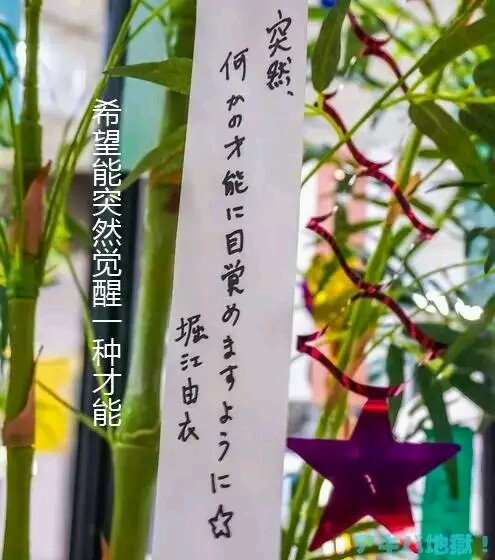 突然、
何かの才能に目覚めますように☆
堀江由衣
希望能突然觉醒一种才能
アキバ地獄！